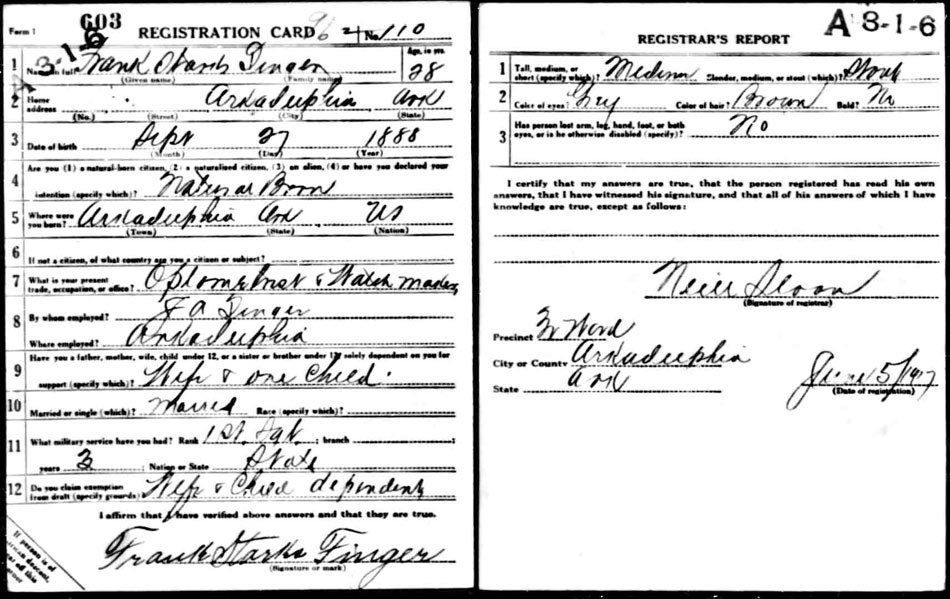 Form 1
603
REGISTRATION CARD
No. 110
Age, in yrs.
1 Name in full Frank Starks Finger 28
(Given name) (Family name)
2 Home address Arkadelphia Ark
(No.) (Street) (City) (State)
3 Date of birth Sept 27 1888
(Month) (Day) (Year)
Are you (1) a natural-born citizen, (2) a naturalized citizen, (3) an alien, (4) or have you declared your
4 intention (specify which)? Natural Born
5 Where were you born? Arkadelphia Ark US
(Town) (State) (Nation)
6 If not a citizen, of what country are you a citizen or subject?
7 What is your present trade, occupation, or office? Optometrist & Watch maker
8 By whom employed? J A Finger
Where employed? Arkadelphia
Have you a father, mother, wife, child under 12, or a sister or brother under 12, solely dependent on you for
9 support (specify which)? Wife & one Child.
10 Married or single (which)? Married Race (specify which)?
11 What military service have you had? Rank 1st. Sgt. ; branch ;
years 3 ; Nation or State State
12 Do you claim exemption from draft (specify grounds)? Wife & Child dependent
I affirm that I have verified above answers and that they are true.
Frank Starks Finger
(Signature or mark)
If person is of
of this
A 3-1-6
REGISTRAR'S REPORT
1 Tall, medium, or short (specify which)? Medium Slender, medium, or stout (which)? Stout
2 Color of eyes? Grey Color of hair? Brown Bald? No
3 Has person lost arm, leg, hand, foot, or both eyes, or is he otherwise disabled (specify)? No
I certify that my answers are true, that the person registered has read his own
answers, that I have witnessed his signature, and that all of his answers of which I have
knowledge are true, except as follows:
Neill Sloan
(Signature of registrar)
Precinct 3r Ward
City or County Arkadelphia
State Ark
June 5/1917
(Date of registration)